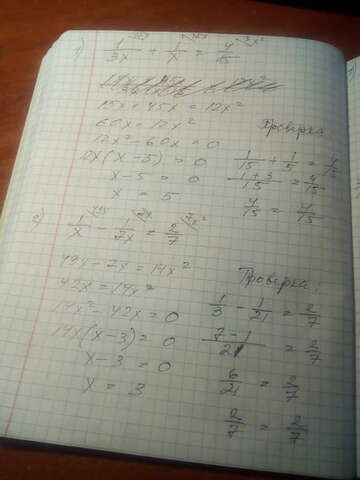 1) 1/3x + 1/x = 4/15
15x + 45x = 12x²
60x = 12x²
12x² - 60x = 0
12x(x - 5) = 0
x - 5 = 0
x = 5
Проверка
1/15 + 1/5 = 4/15
1+3/15 = 4/15
4/15 = 4/15
2) 1/x - 1/7x = 2/7
49x - 7x = 14x²
42x = 14x²
14x² - 42x = 0
14x(x - 3) = 0
x - 3 = 0
x = 3
Проверка:
1/3 - 1/21 = 2/7
7-1/21 = 2/7
6/21 = 2/7
2/7 = 2/7